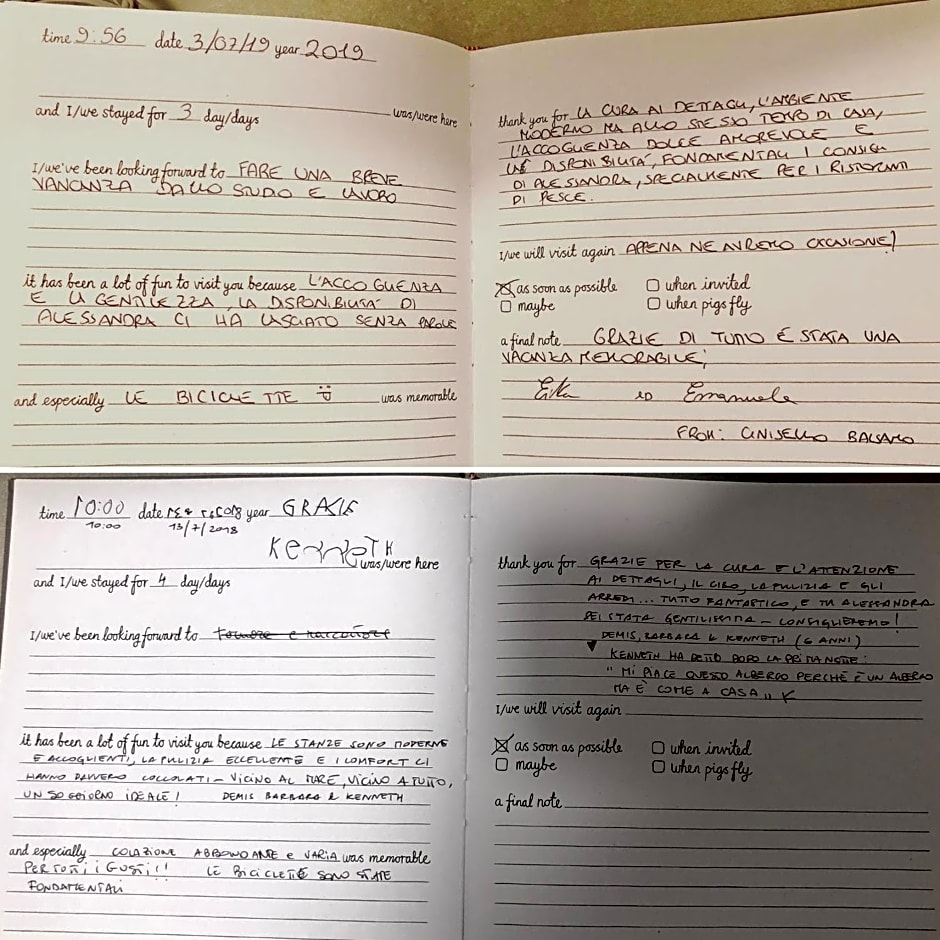 time 9:56 date 3/07/19 year 2019
was/were here
and I/we stayed for 3 day/days
I/we've been looking forward to FARE UNA BREVE
VANCANZA DALLO STUDIO E LAVORO
it has been a lot of fun to visit you because L'ACCOGLIENZA
E LA GENTILEZZA, LA DISPONIBILITA' DI
ALESSANDRA CI HA LASCIATO SENZA PAROLE
and especially LE BICICLETTE was memorable
thank you for LA CURA AI DETTAGLI, L'AMBIENTE
MODERNO MA ALLO STESSO TEMPO DI CASA,
L'ACCOGLIENZA DOLCE AMOREVOLE E
LA DISPONIBILITÁ, FONDAMENTALI I CONSIGLI
DI ALESSANDRA, SPECIALMENTE PER I RISTORANTI
DI PESCE.
I/we will visit again APPENA NE AVREMO OCCASIONE!
as soon as possible when invited
maybe when pigs fly
a final note GRAZIE DI TUTTO É STATA UNA
VACANZA MEMORABILE;
Erika ED Emanuele
FROM: CINISELLO BALSAMO
time 10:00 date year GRAZIE
10:00 13/7/2018
KENNETH
was/were here
and I/we stayed for 4 day/days
I/we've been looking forward to
it has been a lot of fun to visit you because LE STANZE SONO MODERNE
E ACCOGLIENTI, LA PULIZIA ECCELLENTE E I COMFORT CI
HANNO DAVVERO COCCOLATI - VICINO AL MARE, VICINO A TUTTO,
UN SOGGIORNO IDEALE! DEMIS BARBARA & KENNETH
and especially COLAZIONE ABBONDANTE e VARIA was memorable
PER TUTTI I GUSTI!! LE BICICLETTE SONO STATE
FONDAMENTALI
thank you for GRAZIE PER LA CURA E L'ATTENZIONE
AI DETTAGLI, IL CIBO, LA PULIZIA E GLI
ARREDI... TUTTO FANTASTICO, E TU ALESSANDRA
SEI STATA GENTILISSIMA - CONSIGLIEREMO!
DEMIS, BARBARA & KENNETH (6 ANNI)
KENNETH HA DETTO DOPO LA PRIMA NOTTE:
"MI PIACE QUESTO ALBERGO PERCHÉ È UN ALBERGO
MA È COME A CASA"
I/we will visit again
as soon as possible when invited
maybe when pigs fly
a final note